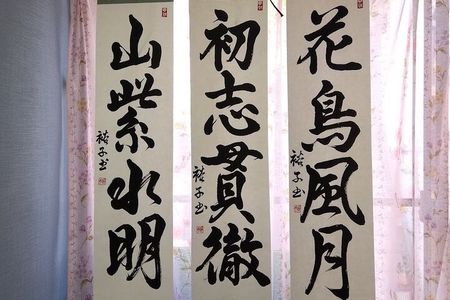 花鳥風月
裕子書
初志貫徹
裕子書
山紫水明
裕子書